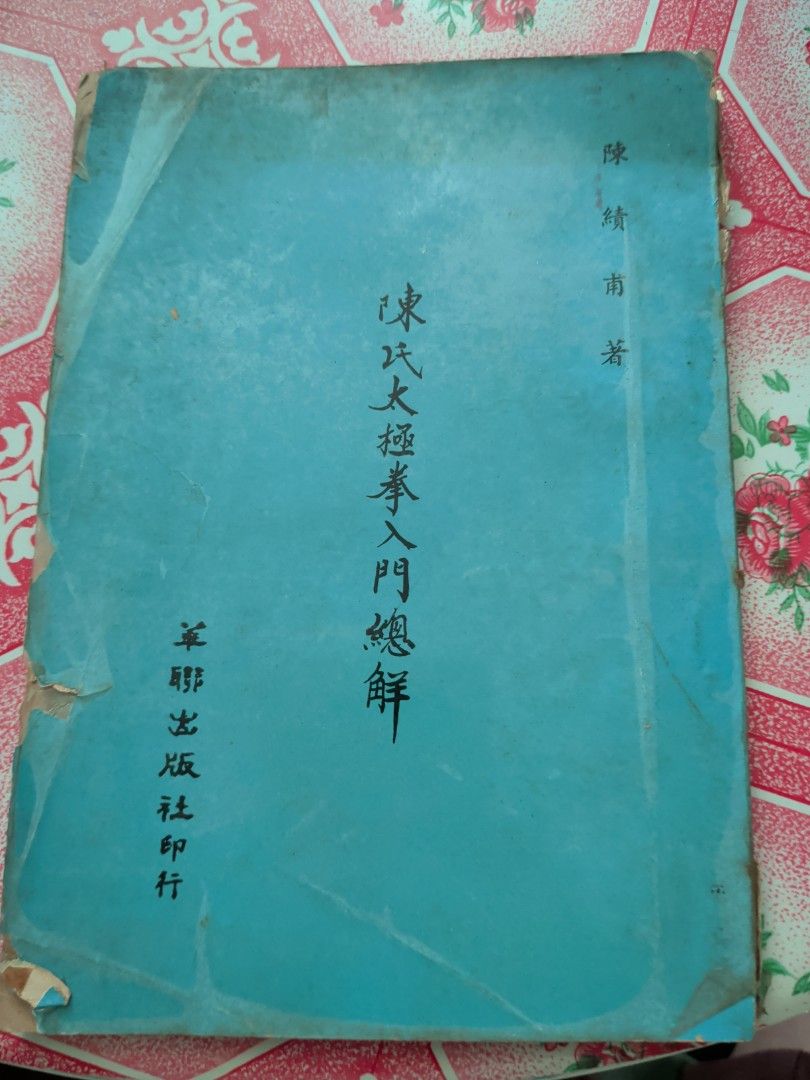 陳績甫著
陳氏太極拳入門總解
華聯出版社印行